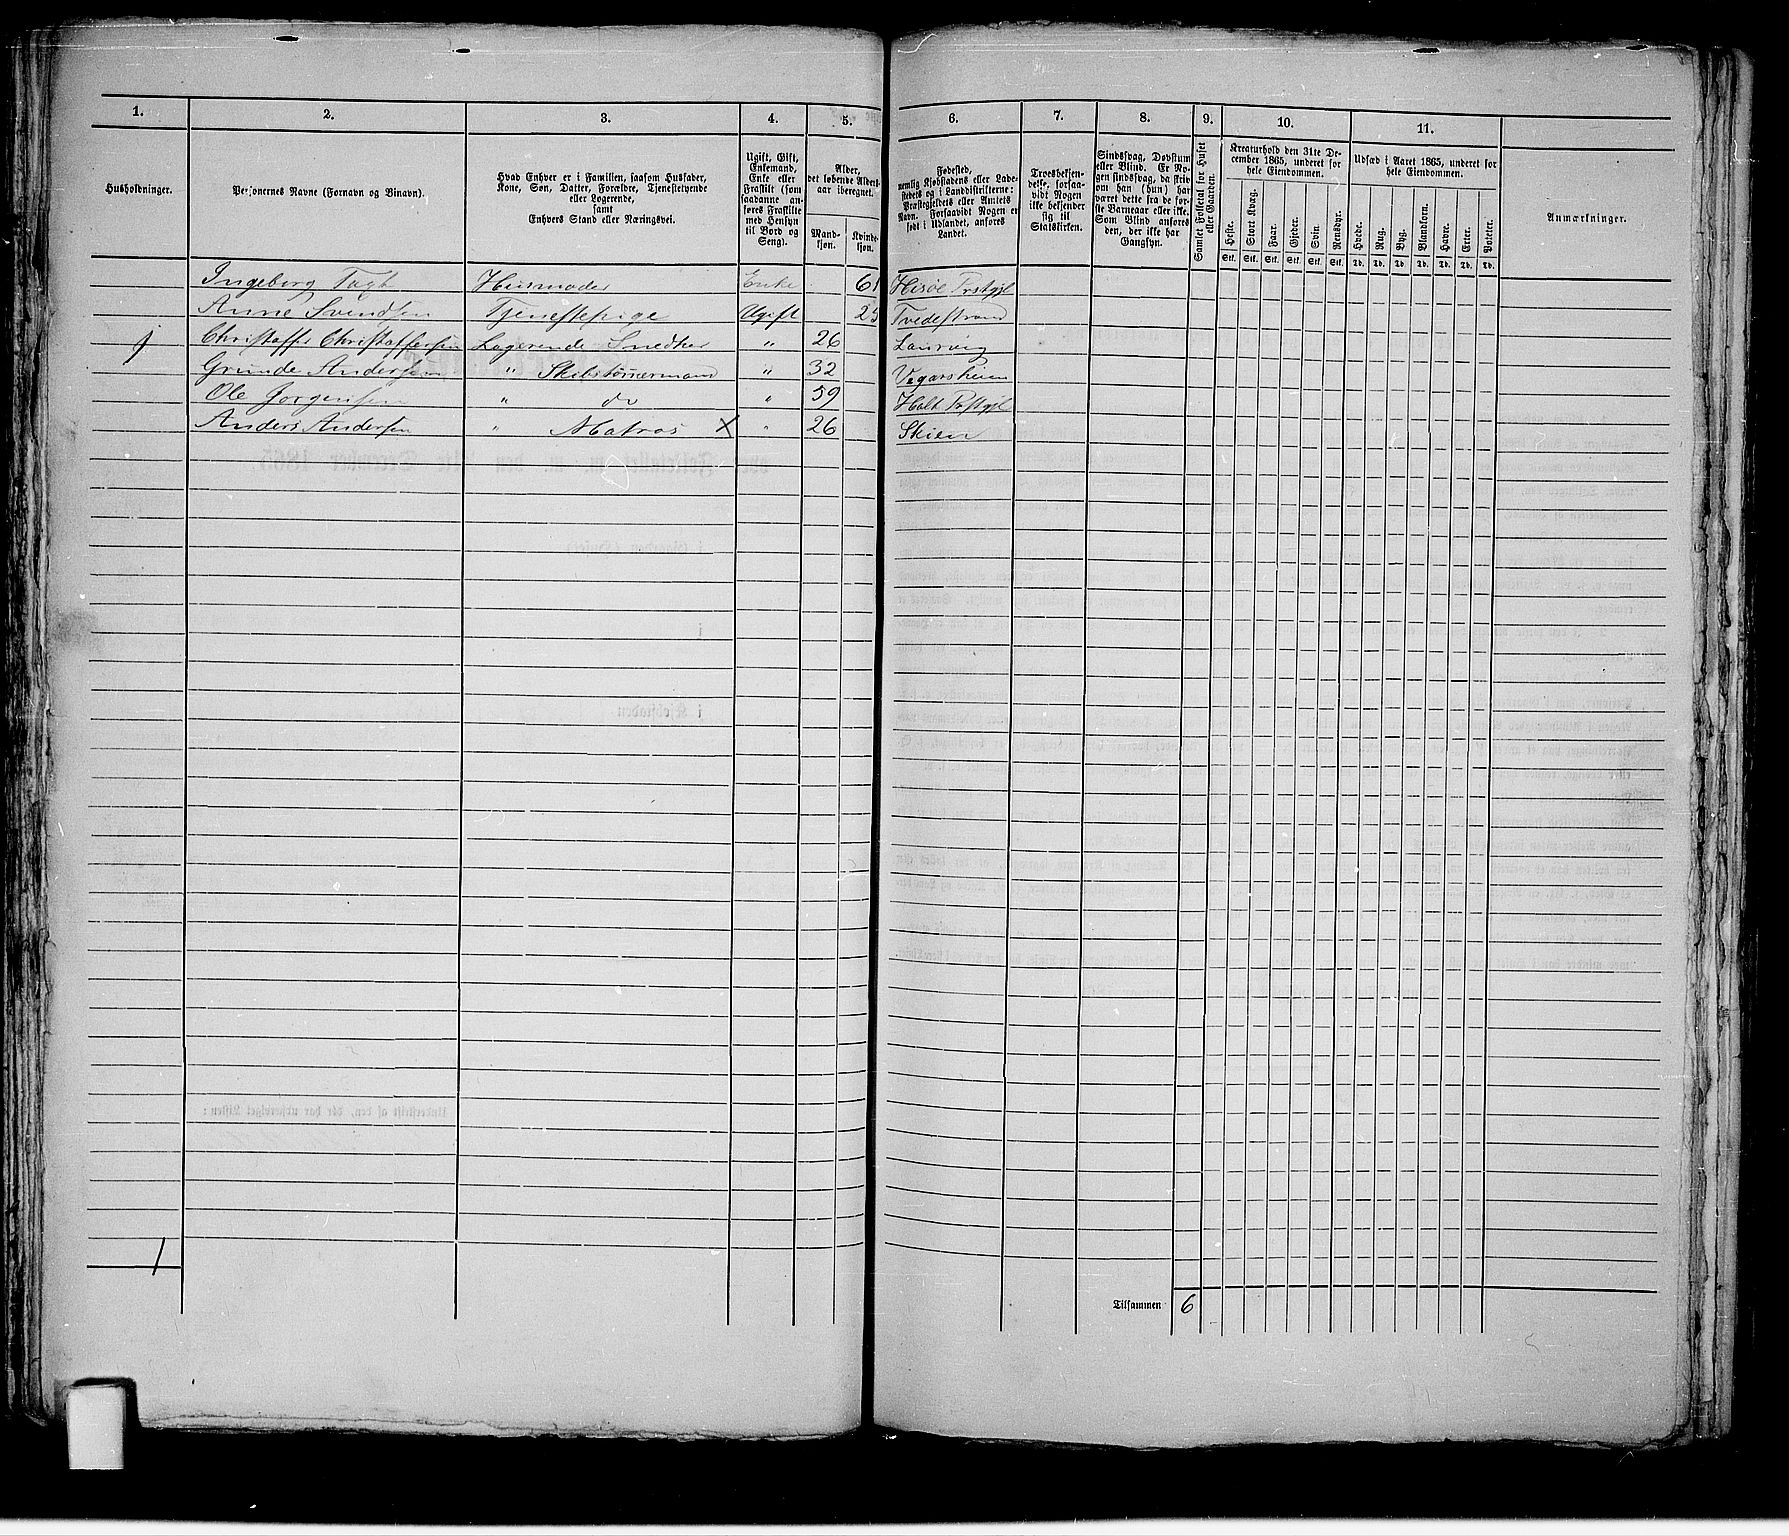 1. 2. 3. 4. 5. 6. 7. 8. 9. 10. 11.
Husholdninger.
Personernes Navne (Fornavn og Binavn).
Hvad Enhver er i Familien, saasom Husfader,
Kone, Søn, Datter, Forældre, Tjenestetyende
eller Logerende,
samt
Enhvers Stand eller Næringsvei.
Ugift, Gift,
Enkemand,
Enke eller
Fraskilt (som
saadanne an-
føres Fraskilte
med Hensyn
til Bord og
Seng).
Alder,
det løbende Alders-
aar iberegnet.
Mand-
kjøn.
Kvinde-
kjøn.
Fødested,
nemlig Kjøbstadens eller Lade-
stedets og i Landdistrikterne:
Præstegjeldets eller Amtets
Navn. Forsaavidt Nogen er
født i Udlandet, anføres
Landet.
Troesbekjen-
delse, forsaa-
vidt Nogen
ikke bekjender
sig til
Statskirken.
Sindssvag, Døvstum
eller Blind. Er No-
gen sindssvag, da skriv
om han (hun) har
været dette fra de før-
ste Barneaar eller ikke.
Som Blind anføres
den, der ikke har
Gangsyn.
Samlet Folketal for Huset
eller Gaarden.
Kreaturhold den 31te De-
cember 1865, underet for
hele Eiendommen.
Heste. Stort Kvæg. Faar. Gjeder. Svin. Rensdyr.
Stk. Stk. Stk. Stk. Stk. Stk.
Udsæd i Aaret 1865, underet for
hele Eiendommen.
Hvede. Rug. Byg. Blandkorn. Havre. Erter. Poteter.
Td. Td. Td. Td. Td. Td. Td.
Anmærkninger.
Ingeborg Husmoder Enke 61 Hisöe Prstgjl
Anne Svendsen Tjenestepige Ugift Tvedestrand
Christoffersen Logerende Snedker " 26 Laurvig
Grunde Andersen " " 32 Vegarsheien
Ole Jørgensen " do " 59 Holt Prstgjl
Anders Andersen " Matros X " 26 Skien
1
Tilsammen 6